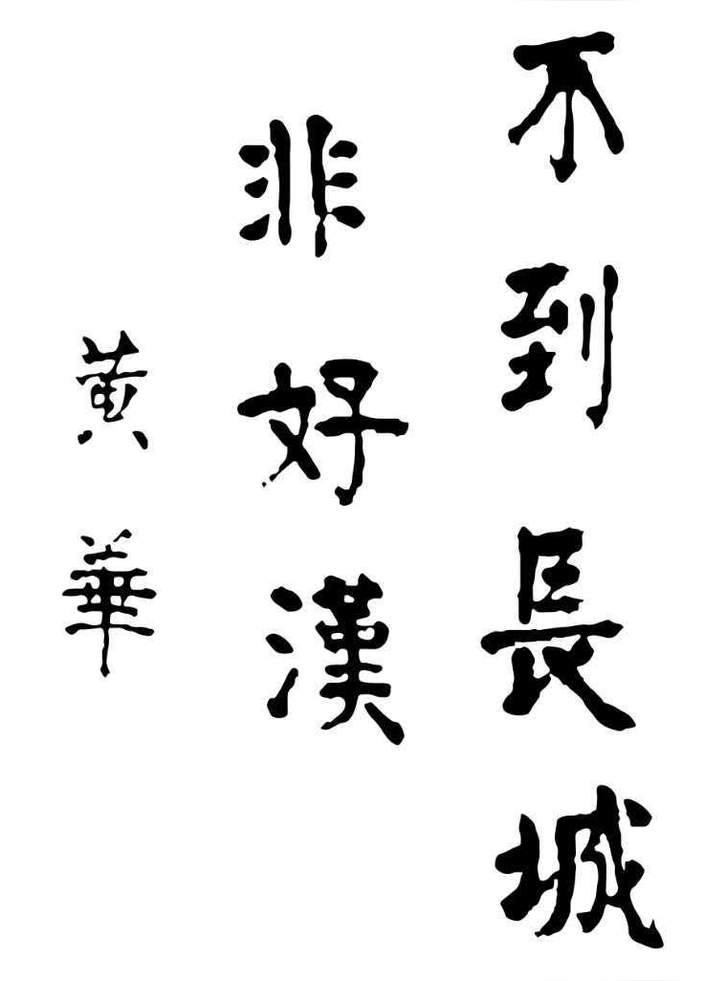 不到長城
非好漢
黄華